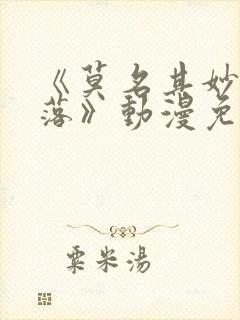 《莫名其妙
落》動漫免
粟米湯